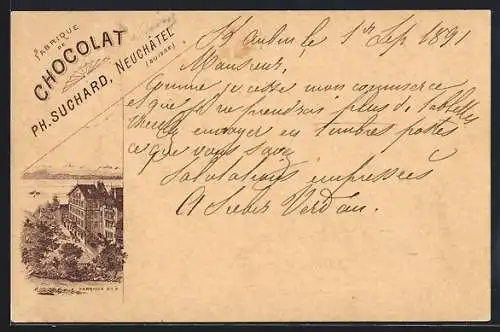 FABRIQUE
DE
CHOCOLAT
PH. SUCHARD, NEUCHÂTEL
(SUISSE)
St Aubin le 1er Sep 1891
Monsieur,
Comme je cesse mon commerce
et que je ne prendrais plus de tablettes
envoyer en timbres postes
ce que vous savez
Salutations empressées
A Verdan.
FABRIQUE